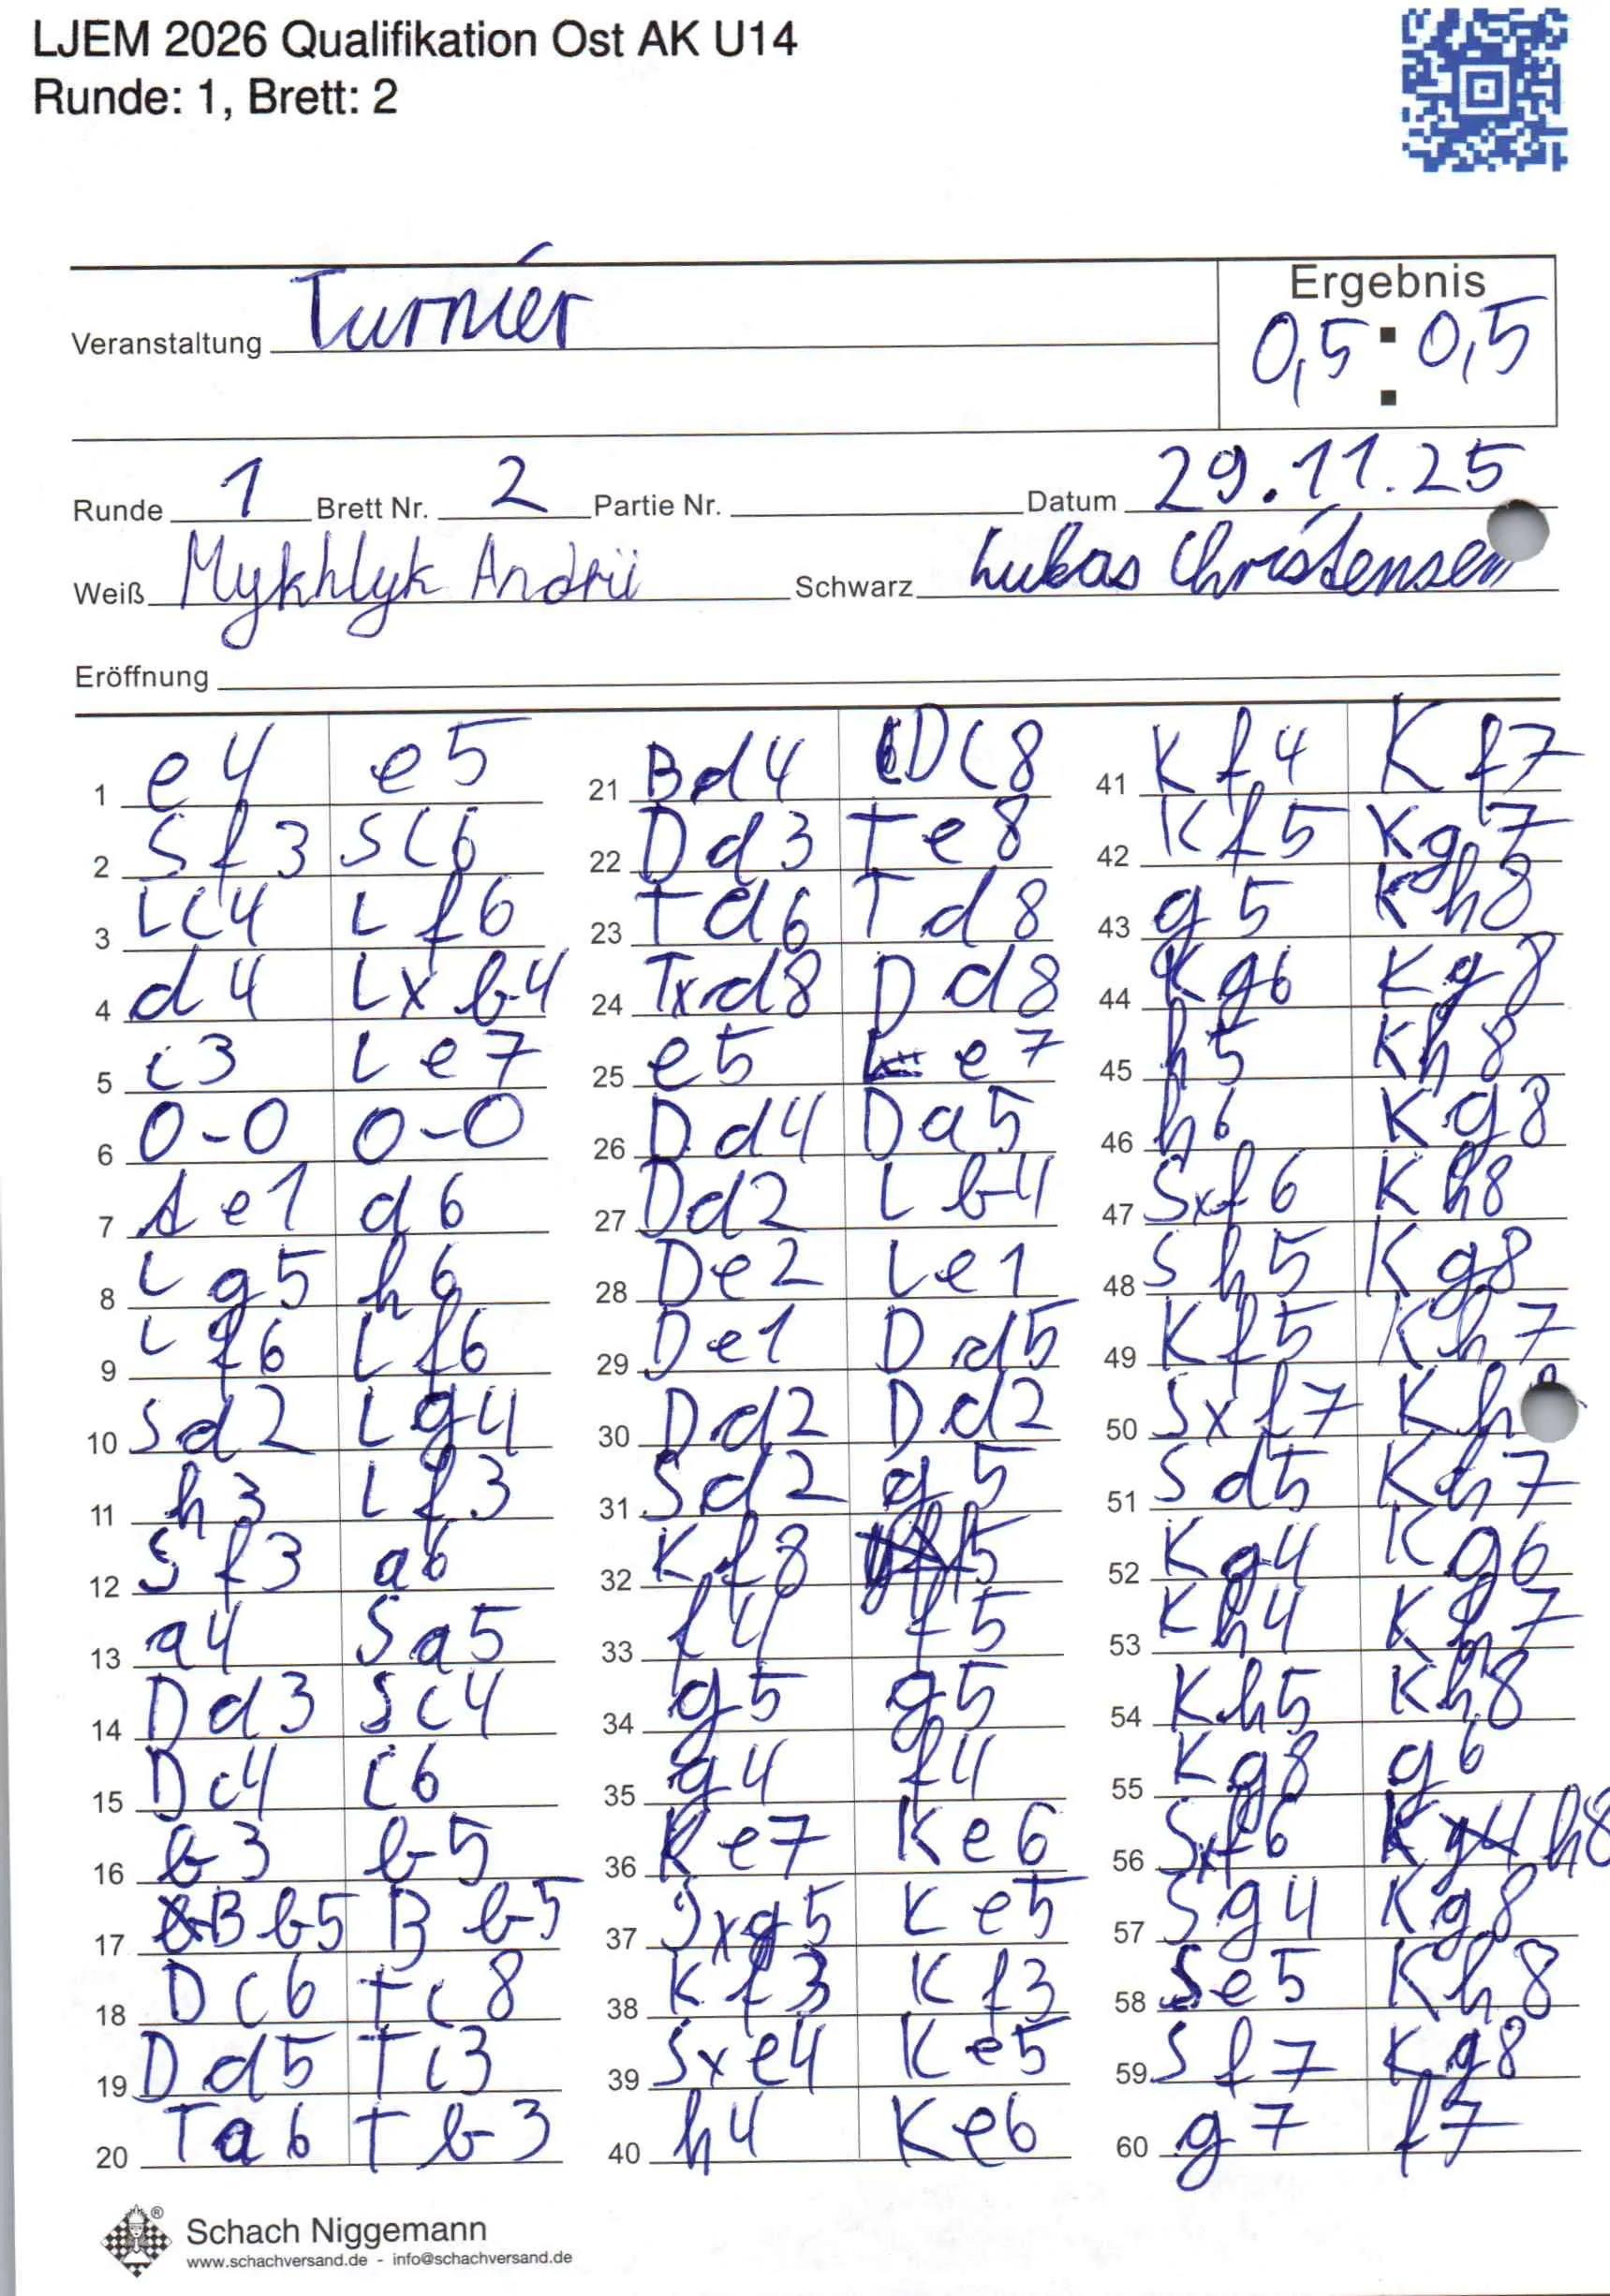 LJEM 2026 Qualifikation Ost AK U14
Runde: 1, Brett: 2
Veranstaltung Turnier
Ergebnis
0,5 : 0,5
Runde 1 Brett Nr. 2 Partie Nr. Datum 29.11.25
Weiß Mykhlyk Andrii Schwarz Lukas Christensen
Eröffnung
1 e4 e5
2 Sf3 Sc6
3 Lc4 Lf6
4 d4 Lxb4
5 c3 Le7
6 0-0 0-0
7 Te1 d6
8 Lg5 h6
9 Lf6 Lf6
10 Sd2 Lg4
11 h3 Lf3
12 Sf3 a6
13 a4 Sa5
14 Dd3 Sc4
15 Dc4 c6
16 b3 b5
17 Bb5 Bb5
18 Dc6 Tc8
19 Dd5 Tc3
20 Ta6 Tb3
21 Bd4 Dc8
22 Dd3 Te8
23 Td6 Td8
24 Txd8 Dd8
25 e5 e7
26 Dd4 Da5
27 Dd2 Lb4
28 De2 Le1
29 De1 Dd5
30 Dd2 Dd2
31 Sd2 g5
32 Kf3
33 f4 f5
34 g5 g5
35 g4 f4
36 Ke7 Ke6
37 Sxg5 Ke5
38 Kf3 Kf3
39 Sxe4 Ke5
40 h4 Ke6
41 Kf4 Kf7
42 Kf5 Kg7
43 g5 Kh8
44 Kg6 Kg8
45 h5 Kh8
46 h6 Kg8
47 Sxf6 Kh8
48 Sh5 Kg8
49 Kf5 Kh7
50 Sxf7 Kh
51 Sd5 Kh7
52 Kg4 Kg6
53 Kh4 Kh7
54 Kh5 Kh8
55 Kg8 g6
56 Sxf6 Kh8
57 Sg4 Kg8
58 Se5 Kh8
59 Sf7 Kg8
60 g7 f7
Schach Niggemann
www.schachversand.de - info@schachversand.de